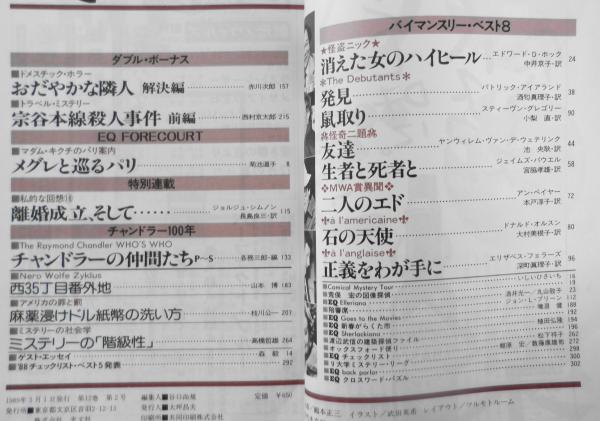 ダブル・ボーナス
■ドメスチック・ホラー
おだやかな隣人 解決編 赤川次郎 157
■トラベル・ミステリー
宗谷本線殺人事件 前編 西村京太郎 215
EQ FORECOURT
■マダム・キクチのパリ案内
メグレと巡るパリ 菊池道子 8
特別連載
■私的な回想
離婚成立、そして…… ジョルジュ・シムノン 長島良三・訳 115
チャンドラー100年
■The Raymond Chandler WHO'S WHO
チャンドラーの仲間たちP〜S 各務三郎・編 133
■Nero Wolfe Zyklus
西35丁目番外地 山本 博 183
■アメリカの罪と罰
麻薬浸けドル紙幣の洗い方 枝川公一 207
■ミステリーの社会学
ミステリーの「階級性」 高橋哲雄 264
■ゲスト・エッセイ 森 毅 14
■'88チェックリスト・ベスト5発表 292
1989年3月1日発行 第12巻 第2号 編集人■谷口尚規 定価 ¥650
発行所■東京都文京区音羽2-12-13 発行人■大坪昌夫
株式会社 光文社 印刷所■共同印刷株式会社
バイマンスリー・ベスト8
★怪盗ニック★
消えた女のハイヒール エドワード・D・ホック 中井京子・訳 24
＊The Debutants＊
発見 パトリック・アイアランド 酒匂真理子・訳 38
鼠取り スティーヴン・グレゴリー 小梨 直・訳 90
怪奇二題
友達 ヤンウィレム・ヴァン・デ・ウェテリンク 池 央耿・訳 44
生者と死者と ジェイムズ・パウエル 宮脇孝雄・訳 58
MWA賞異聞
二人のエド アン・ベイヤー 本戸淳子・訳 72
à l'americaine
石の天使 ドナルド・オルスン 大村美根子・訳 80
à l'anglaise
正義をわが手に エリザベス・フェラーズ 深町真理子・訳 96
■Comical Mystery Tour いしいひさいち 16
■EQ Elleriana
■陪審席
■EQ Goes to the Movies
■EQ 新春がらくた市
■EQ Sherlockiana
■渡辺武信の建築探偵ファイル
■オックスフォード便り
■EQ チェックリスト
■EQ back parlor
■EQ クロスワード・パズル
イラスト／武田英希 レイアウト／ツルモトルーム